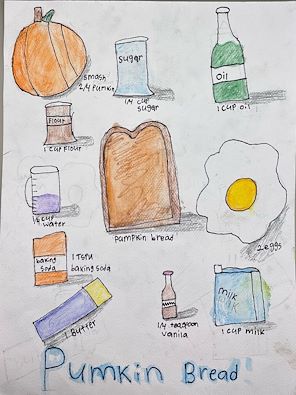 smash
2/4 Pumkin
Sugar
1/4 cup
sugar
Oil
1 cup oil
Flour
1 cup flour
1/4 cup
water
Pumpkin bread
2 eggs
baking
soda
1 TSPU
baking soda
1 Butter
1/4 teaspoon
Vanila
Milk
1 cup milk
Pumkin Bread